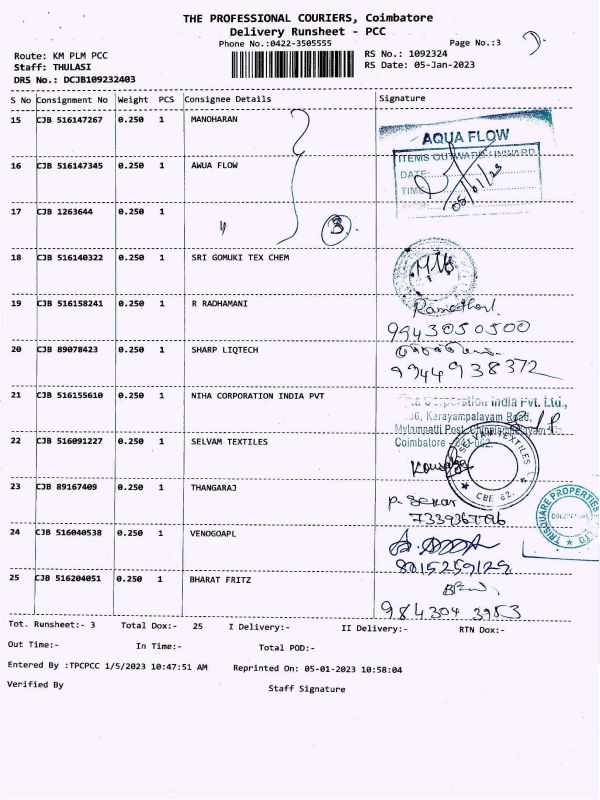 THE PROFESSIONAL COURIERS, Coimbatore
Delivery Runsheet - PCC
Phone No.:0422-3505555
Page No.:3
Route: KM PLM PCC
RS No.: 1092324
Staff: THULASI
RS Date: 05-Jan-2023
DRS No.: DCJB109232403
S No Consignment No Weight PCS Consignee Details Signature
15 CJB 516147267 0.250 1 MANOHARAN
AQUA FLOW
ITEMS OUTWARD/INWARD
DATE:
TIME
05/01/23
16 CJB 516147345 0.250 1 AWUA FLOW
17 CJB 1263644 0.250 1
3
18 CJB 516140322 0.250 1 SRI GOMUKI TEX CHEM
19 CJB 516158241 0.250 1 R RADHAMANI
9943050500
20 CJB 89078423 0.250 1 SHARP LIQTECH
9344938372
21 CJB 516155610 0.250 1 NIHA CORPORATION INDIA PVT
Corporation India Pvt. Ltd.,
Karayampalayam Road,
Mylampatti Post, Chinniampalayam
Coimbatore
22 CJB 516091227 0.250 1 SELVAM TEXTILES
SELVAM TEXTILES
CBE 62.
23 CJB 89167409 0.250 1 THANGARAJ
P. Sekar
TRISQUARE PROPERTIES
LTD
24 CJB 516040538 0.250 1 VENOGOAPL
8015259129
25 CJB 516204051 0.250 1 BHARAT FRITZ
984304 3953
Tot. Runsheet:- 3 Total Dox:- 25 I Delivery:- II Delivery:- RTN Dox:-
Out Time:- In Time:- Total POD:-
Entered By :TPCPCC 1/5/2023 10:47:51 AM Reprinted On: 05-01-2023 10:58:04
Verified By Staff Signature